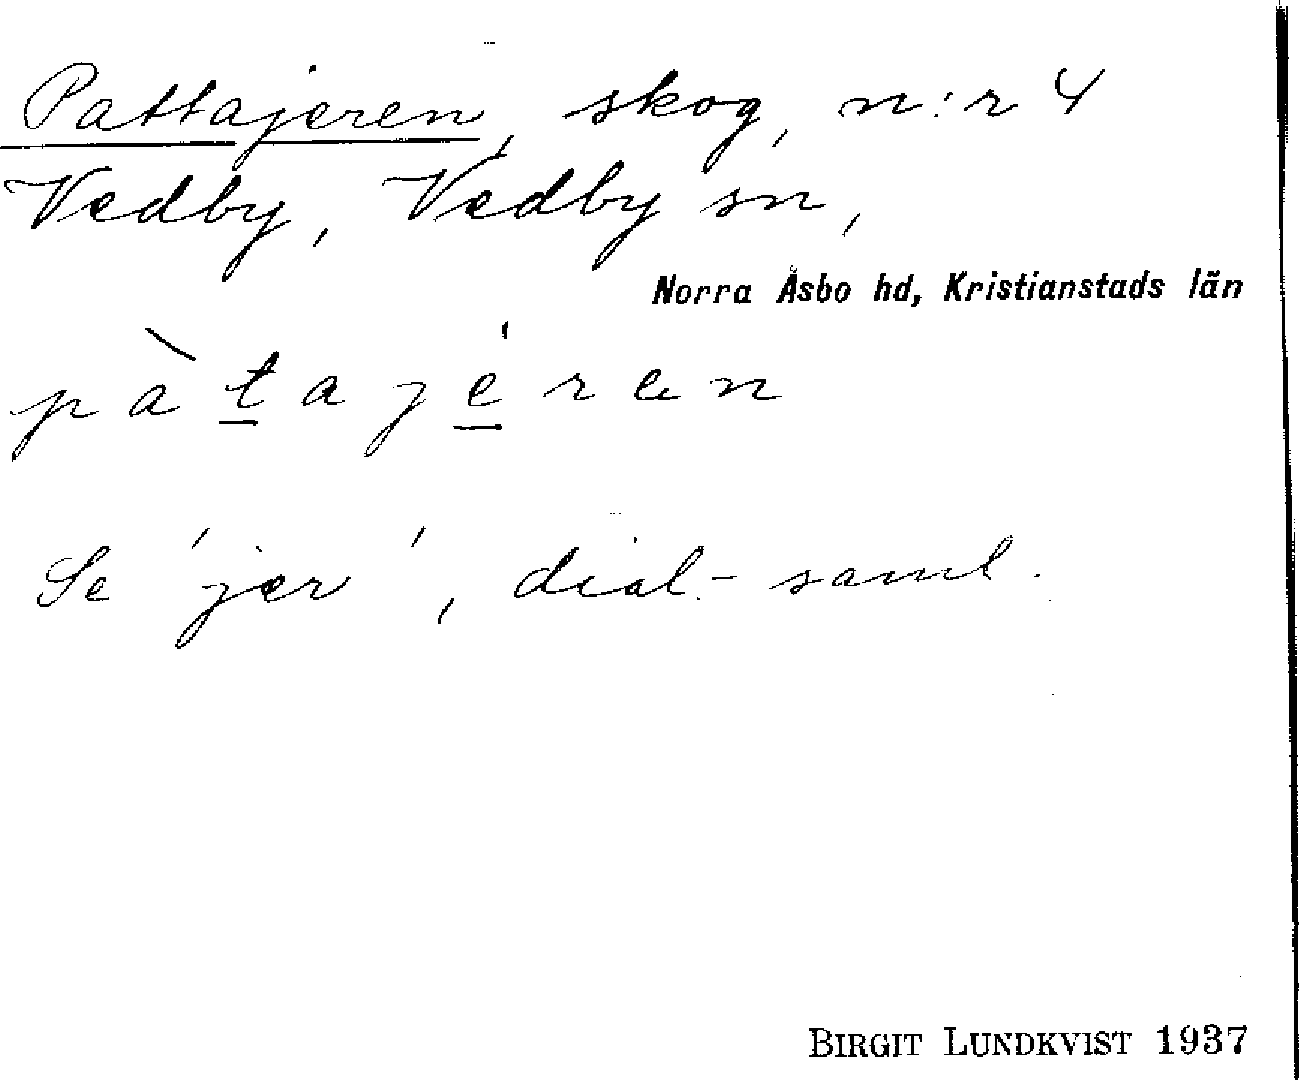 Pattajeren, skog, n:r 4
Vedby, Vedby sn,
Norra Åsbo hd, Kristianstads län
pàtajéren
Se 'jer', dial.-saml.
BIRGIT LUNDKVIST 1937